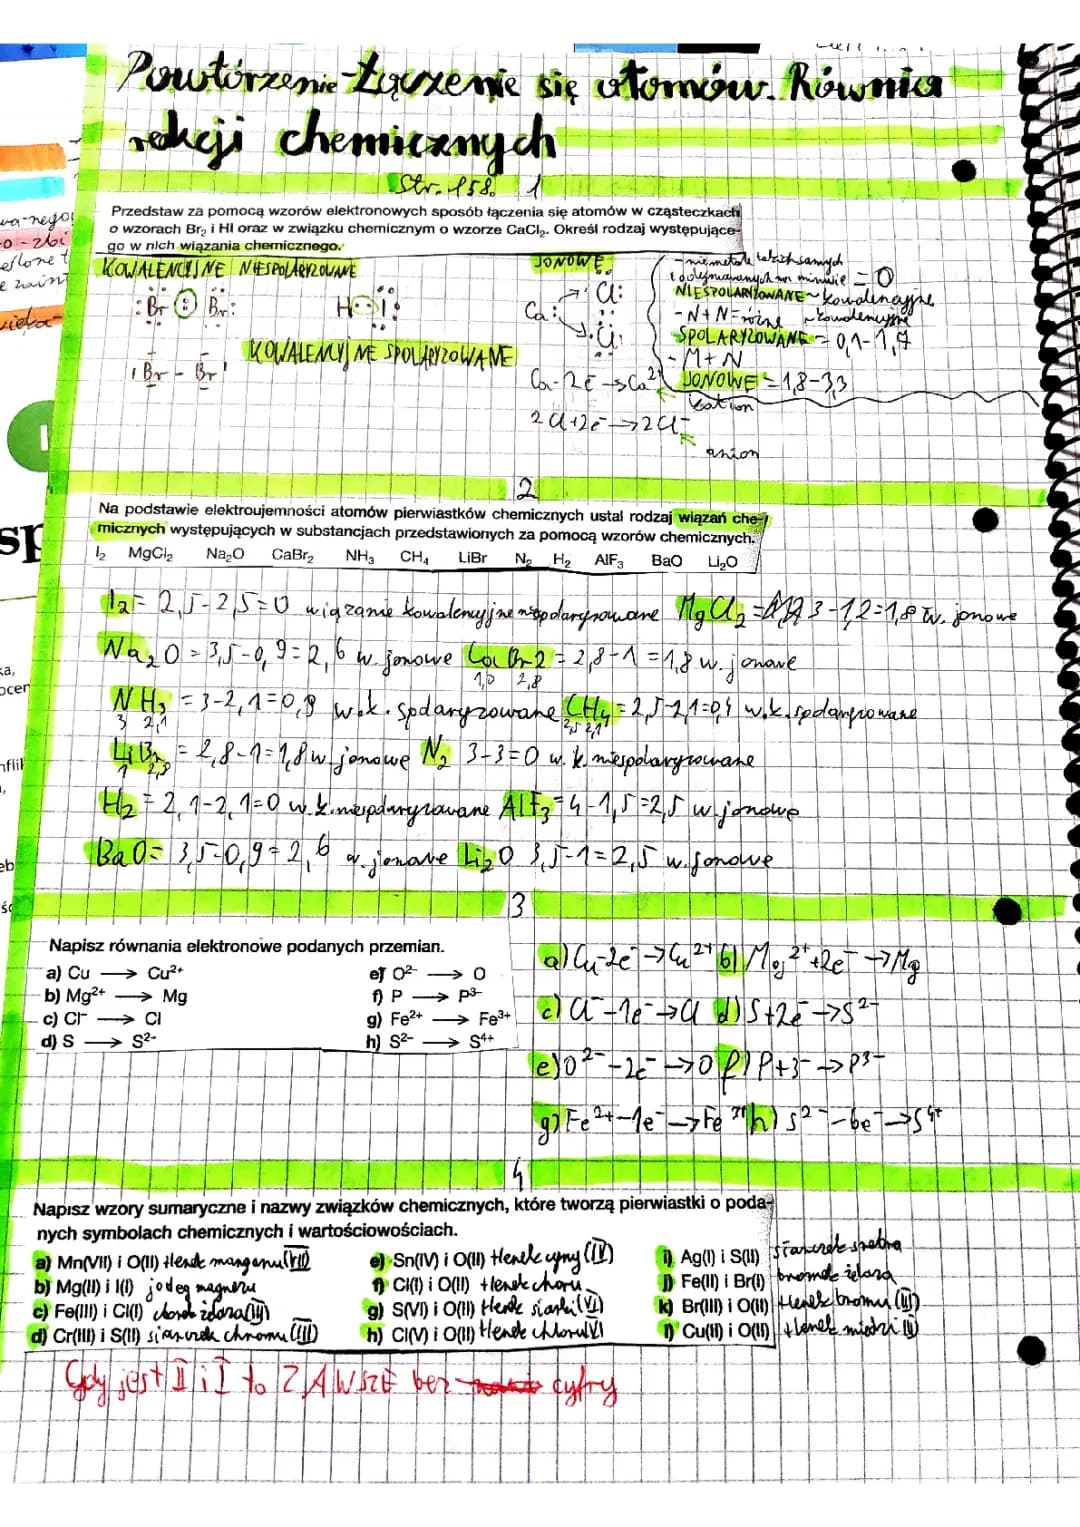 Powtórzenie-Łączenie się atomów. Równnia
reakcji chemicznych
Str. 158. 1
Przedstaw za pomocą wzorów elektronowych sposób łączenia się atomów w cząsteczkach
o wzorach Br₂ i HI oraz w związku chemicznym o wzorze CaCl₂. Określ rodzaj występujące-
go w nich wiązania chemicznego.
KOWALENCYJNE NIESPOLARYZOWANE
JONOWE
- niemetale takich samych
= 0
NIESPOLARYZOWANE ~ kowalencyjne
- N + N = różne ~ kowalencyjne
SPOLARYZOWANE = 0,1-1,7
- M + N
JONOWE = 1,8-3,3
Br Br
H I
Ca Cl
Cl
KOWALENCYJNE SPOLARYZOWANE
Br - Br
Ca-2e⁻→Ca²⁺
kation
2Cl+2e⁻→2Cl⁻
anion
2
Na podstawie elektroujemności atomów pierwiastków chemicznych ustal rodzaj wiązań che-
micznych występujących w substancjach przedstawionych za pomocą wzorów chemicznych.
I₂ MgCl₂ Na₂O CaBr₂ NH₃ CH₄ LiBr N₂ H₂ AlF₃ BaO Li₂O
I₂ = 2,5-2,5=0 wiązanie kowalencyjne niespolaryzowane MgCl₂ = 3-1,2=1,8 w. jonowe
Na₂O = 3,5-0,9=2,6 w. jonowe CaBr2 = 2,8-1=1,8 w. jonowe
1,0 2,8
NH₃ = 3-2,1=0,9 w.k. spolaryzowane CH₄ = 2,5-2,1=0,4 w.k. spolaryzowane
3 2,1 2,5 2,1
LiBr₂ = 2,8-1=1,8 w. jonowe N₂ 3-3=0 w. k. niespolaryzowane
1 2,8
H₂ = 2,1-2,1=0 w.k. niespolaryzowane AlF₃ = 4-1,5=2,5 w. jonowe
BaO = 3,5-0,9=2,6 w. jonowe Li₂O 3,5-1=2,5 w. jonowe
3
Napisz równania elektronowe podanych przemian.
a) Cu → Cu²⁺ e) O²⁻ → O
b) Mg²⁺ → Mg f) P → P³⁻
c) Cl⁻ → Cl g) Fe²⁺ → Fe³⁺
d) S → S²⁻ h) S²⁻ → S⁴⁺
a) Cu-2e⁻→Cu²⁺ b) Mg²⁺+2e⁻→Mg
c) Cl⁻-1e⁻→Cl d) S+2e⁻→S²⁻
e) O²⁻-2e⁻→O f) P+3⁻→P³⁻
g) Fe²⁺-1e⁻→Fe³⁺ h) S²⁻-6e⁻→S⁴⁺
4
Napisz wzory sumaryczne i nazwy związków chemicznych, które tworzą pierwiastki o poda-
nych symbolach chemicznych i wartościowościach.
a) Mn(VII) i O(II) tlenek manganu(VII) e) Sn(IV) i O(II) tlenek cyny (IV) i) Ag(I) i S(II) siarczek srebra
b) Mg(II) i I(I) jodeg magnezu f) Cl(I) i O(II) tlenek chloru j) Fe(II) i Br(I) bromek żelaza
c) Fe(III) i Cl(I) chlorek żelaza(III) g) S(VI) i O(II) tlenek siarki(VI) k) Br(III) i O(II) tlenek bromu (III)
d) Cr(III) i S(II) siarczek chromu(III) h) Cl(V) i O(II) tlenek chloru VI l) Cu(II) i O(II) tlenek miedzi (II)
Gdy jest II i I to ZAWSZE bez cyfry